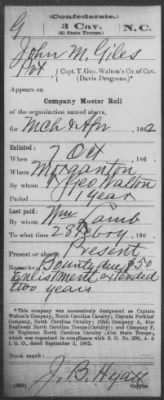 (Confederate.)
G 3 Cav. N.C.
(41 State Troops.)
John M. Giles
Pvt { Capt. T. Geo. Walton's Co. of Cav.
(Davis Dragoons).*
Appears on
Company Muster Roll
of the organization named above,
for Mch & Apr 1862
Enlisted:
When 7 Oct 186
Where Morganton
By whom T Geo Walton
Period 1 year
Last paid:
By whom Wm Lamb
To what time 28 Feby, 186
Present or absent Present
Remarks: Bounty due $50
Enlistment extended
two years
*This company was successively designated as Captain
Walton's Company, North Carolina Cavalry; Captain
Company, North Carolina Cavalry; Company A, 41st
Regiment North Carolina Troops (Cavalry); and Company F, 3d
Regiment North Carolina Cavalry (41st State Troops),
which was organized in compliance with S. O. No. 
A. & I. G. O., dated September 3, 1862.
Book mark:
J. B. Hyatt
(642) Copyist.